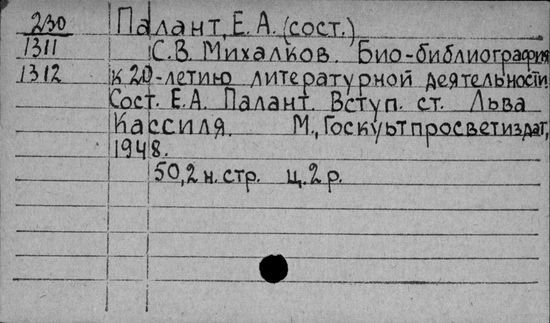 230 Палант, Е. А. (сост.)
1311 С. В. Михалков. Био-библиография
1312 к 20-летию литературной деятельности
Сост. Е. А. Палант. Вступ. ст. Льва
Кассиля. М., Госкультпросветиздат,
1948.
50,2 н. стр. ц. 2 р.